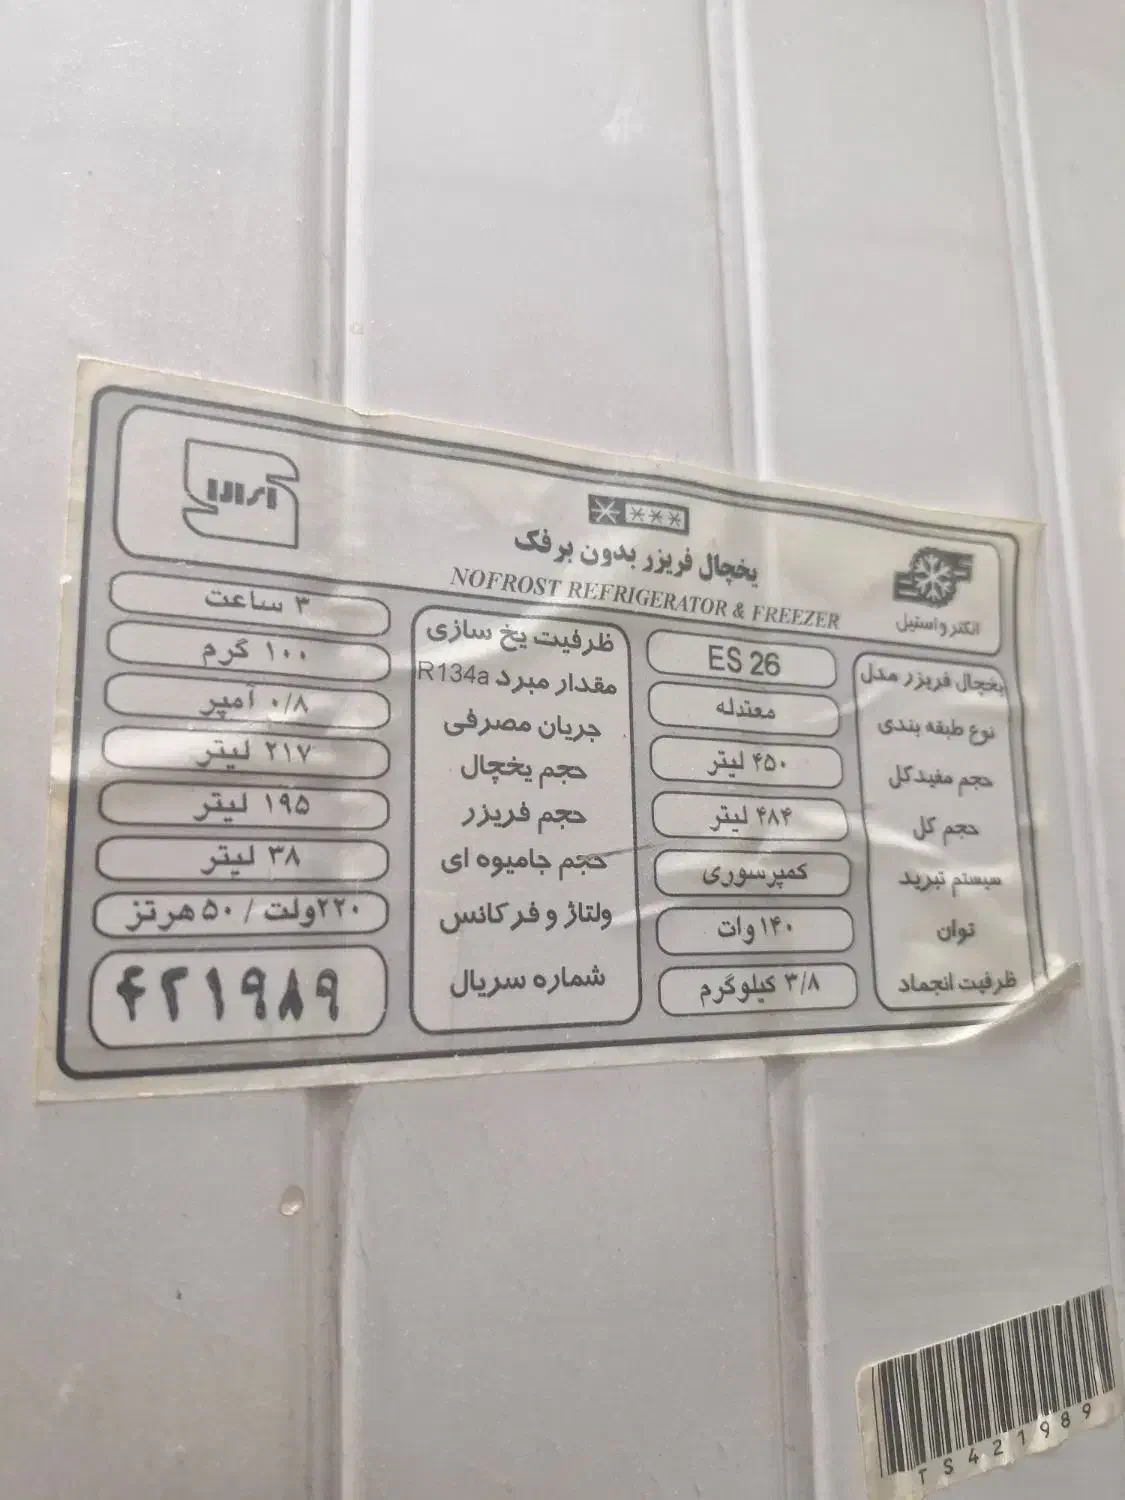 الکترواستیل
یخچال فریزر بدون برفک
NOFROST REFRIGERATOR & FREEZER
یخچال فریزر مدل ES 26
نوع طبقه بندی معتدله
حجم مفیدکل ۴۵۰ لیتر
حجم کل ۴۸۴ لیتر
سیستم تبرید کمپرسوری
توان ۱۴۰ وات
ظرفیت انجماد ۳/۸ کیلوگرم
ظرفیت یخ سازی ۳ ساعت
مقدار مبرد R134a ۱۰۰ گرم
جریان مصرفی ۰/۸ آمپر
حجم یخچال ۲۱۷ لیتر
حجم فریزر ۱۹۵ لیتر
حجم جامیوه ای ۳۸ لیتر
ولتاژ و فرکانس ۲۲۰ولت / ۵۰هرتز
شماره سریال ۴۲۱۹۸۹
TS421989